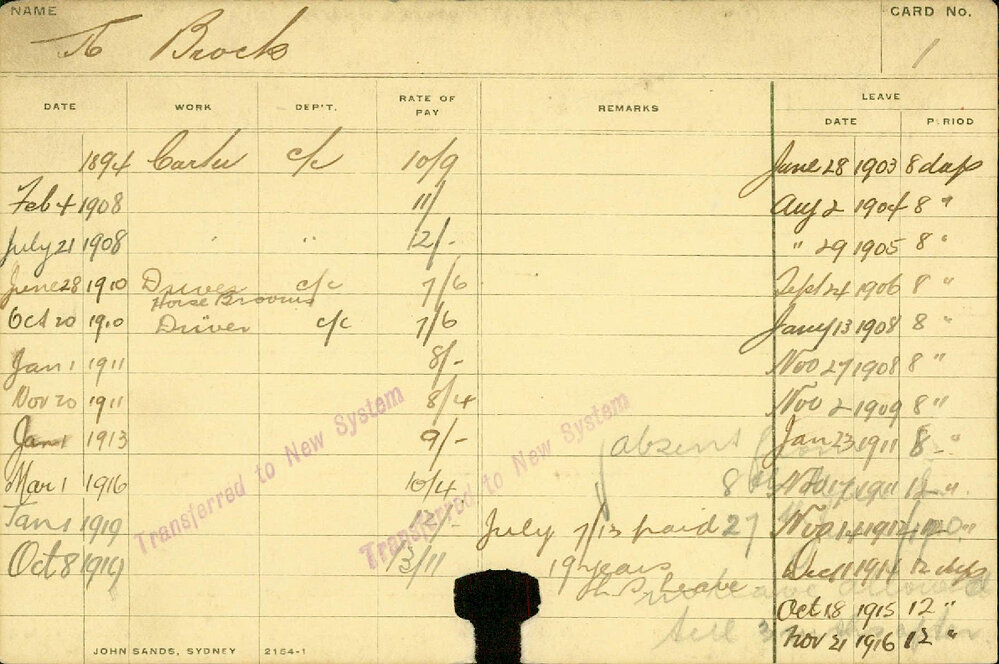 NAME CARD No.
Brock 1
DATE WORK DEP'T. RATE OF PAY REMARKS LEAVE
DATE PERIOD
1894 Carter c/c 10/9 June 28 1903 8 days
Feb 4 1908 11/ Aug 2 1904 8 "
July 21 1908 " " 12/- " 29 1905 8 "
June 28 1910 Driver c/c 7/6 Sept 24 1906 8 "
Horse Brooms
Oct 20 1910 Driver c/c 7/6 Jany 13 1908 8 "
Jan 1 1911 8/- Nov 27 1908 8 "
Nov 20 1911 8/4 Nov 2 1909 8 "
Jan 1 1913 9/- absent Jan 23 1911 8 "
Mar 1 1916 10/4 8 Nov 17 1911 12 "
Jan 1 1919 12/- July 7/13 paid 27 Nov 14 1912
Oct 8 1919 13/11 19 years Dec 11 1914 12 dys
leave
Oct 18 1915 12 "
Nov 21 1916 12 "
Transferred to New System
Transferred to New System
JOHN SANDS, SYDNEY 2154-1